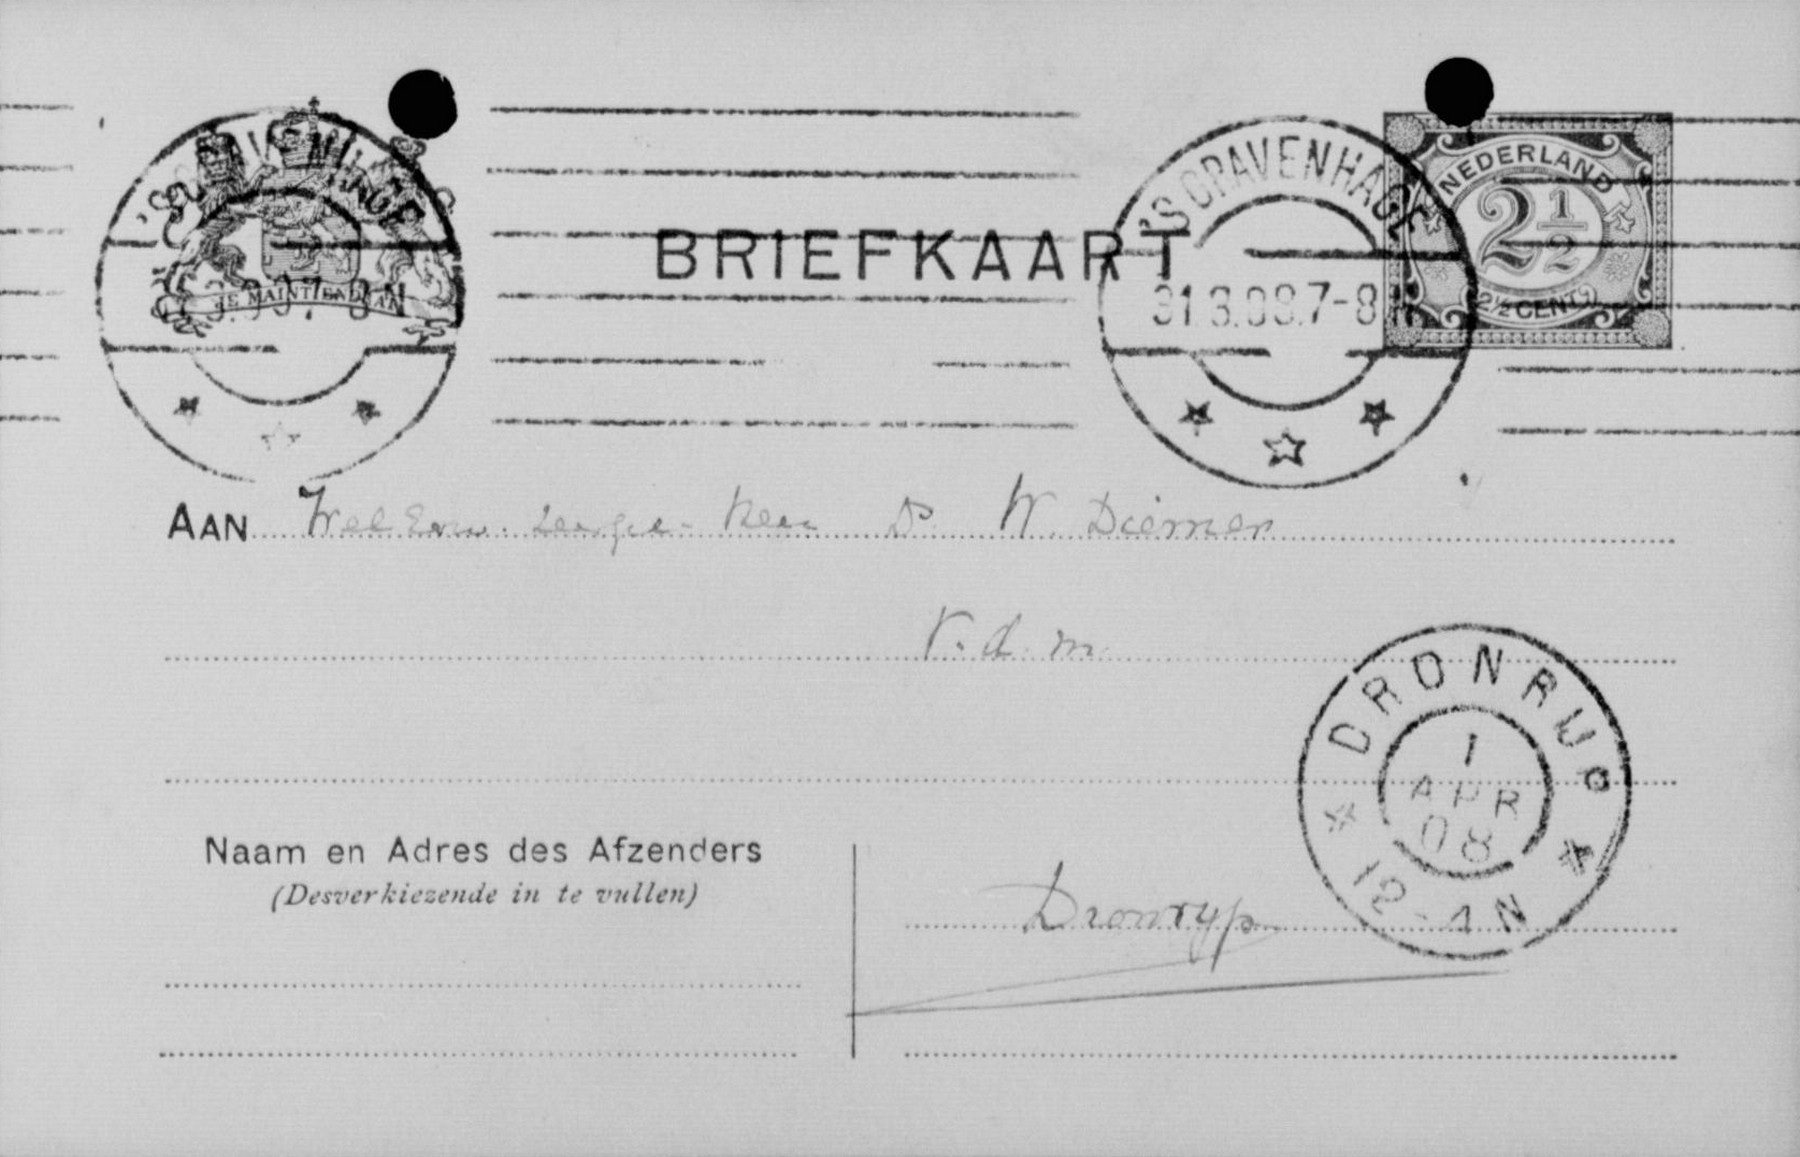 'S GRAVENHAGE
JE MAINTIENDRAI
BRIEFKAART
'S GRAVENHAGE
31.3.08.7-8N
NEDERLAND
2 1/2
2½ CENT
AAN Wel Eerw. Heer Ds W. Diemer
V.d.m.
DRONRIJP
1
APR
08
12-1N
Naam en Adres des Afzenders
(Desverkiezende in te vullen)
Dronryp